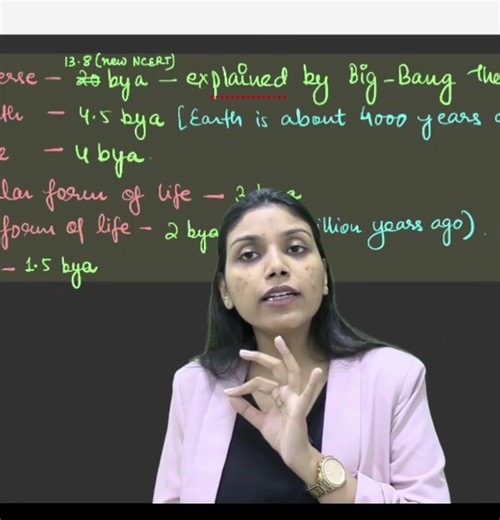 13.8 (new NCERT)
erse – 20 bya – explained by Big-Bang The
th – 4.5 bya [Earth is about 4000 years
– 4 bya.
lar form of life –
form of life – 2 bya illion years ago).
– 1.5 bya